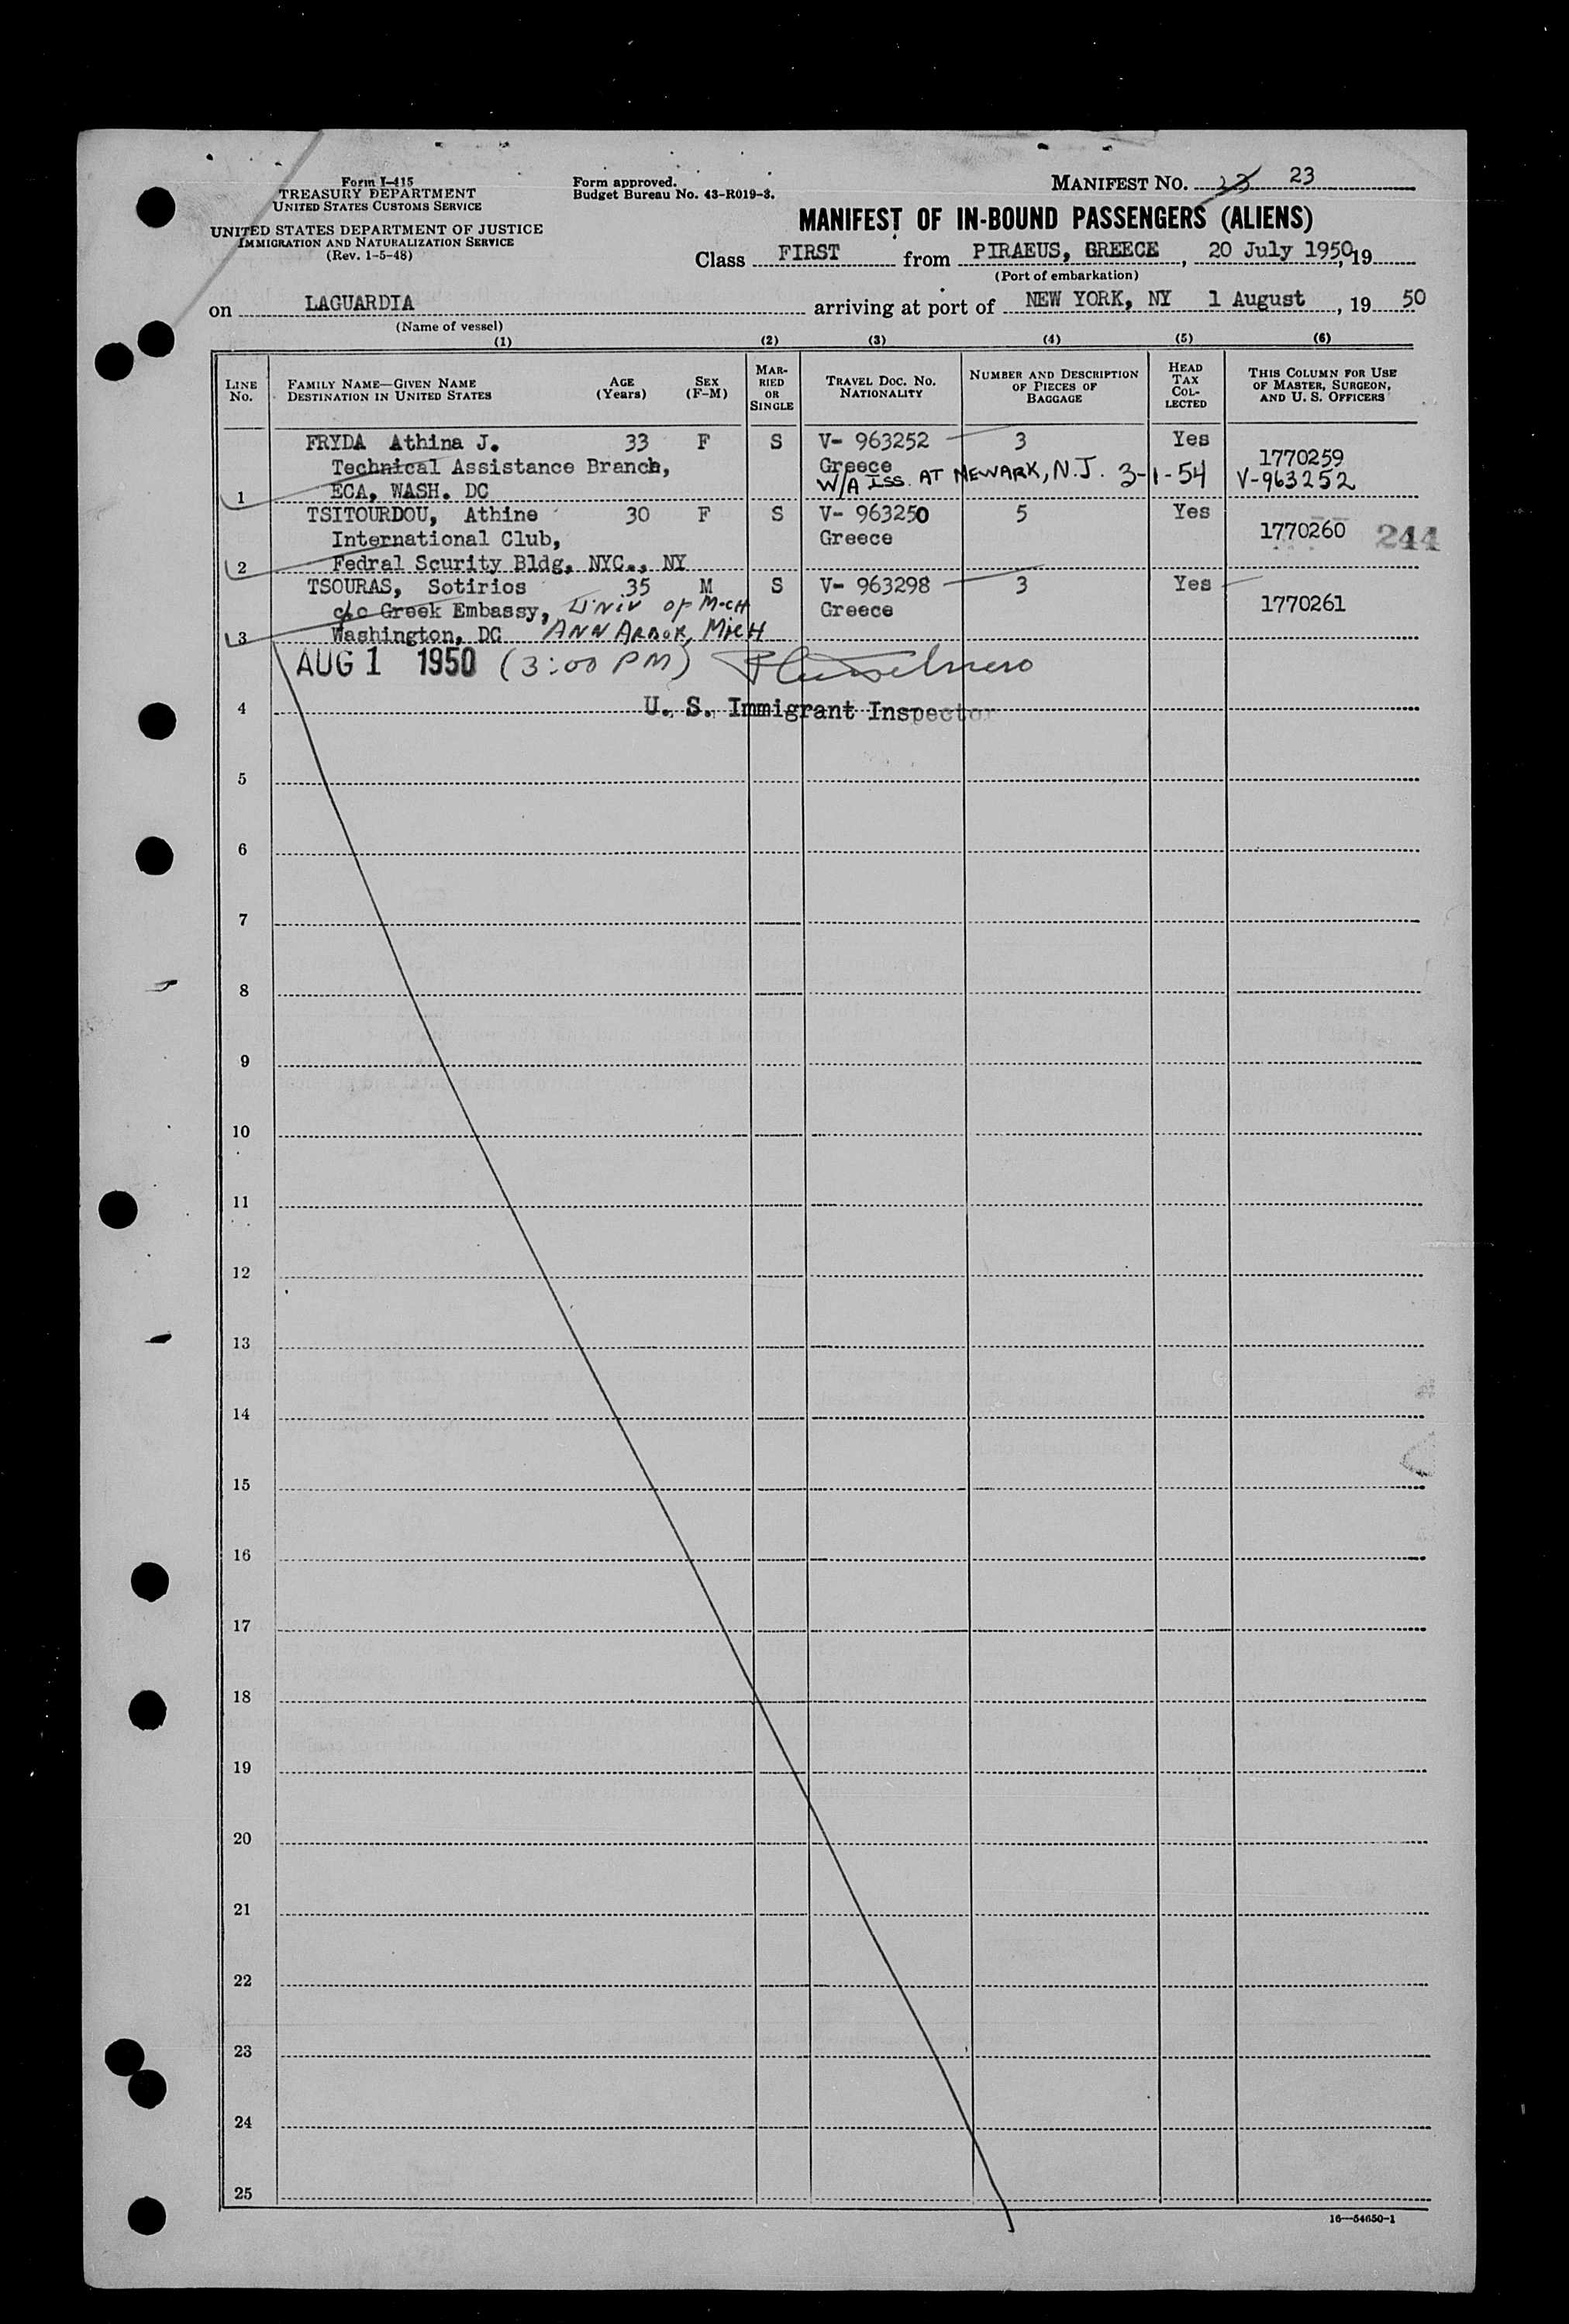 Form I-415
TREASURY DEPARTMENT
UNITED STATES CUSTOMS SERVICE
UNITED STATES DEPARTMENT OF JUSTICE
IMMIGRATION AND NATURALIZATION SERVICE
(Rev. 1-5-48)
Form approved.
Budget Bureau No. 43-R019-3.
MANIFEST NO. 23 23
MANIFEST OF IN-BOUND PASSENGERS (ALIENS)
Class FIRST from PIRAEUS, GREECE, 20 July 1950, 19
(Port of embarkation)
on LAGUARDIA arriving at port of NEW YORK, NY 1 August, 19 50
(Name of vessel)
(1) (2) (3) (4) (5) (6)
LINE No.
FAMILY NAME—GIVEN NAME
DESTINATION IN UNITED STATES
AGE (Years)
SEX (F-M)
MARRIED OR SINGLE
TRAVEL DOC. NO. NATIONALITY
NUMBER AND DESCRIPTION OF PIECES OF BAGGAGE
HEAD TAX COLLECTED
THIS COLUMN FOR USE OF MASTER, SURGEON, AND U. S. OFFICERS
FRYDA Athina J. 33 F S V- 963252 3 Yes
Technical Assistance Branch, Greece 1770259
1 ECA, WASH. DC W/A ISS. AT NEWARK, N.J. 3-1-54 V-963252
TSITOURDOU, Athine 30 F S V- 963250 5 Yes
International Club, Greece 1770260 244
2 Fedral Scurity Bldg, NYC., NY
TSOURAS, Sotirios 35 M S V- 963298 3 Yes
c/o Greek Embassy, UNIV OF MICH Greece 1770261
3 Washington, DC ANN ARBOR, MICH
AUG 1 1950 (3:00 PM)
4 U. S. Immigrant Inspector
5
6
7
8
9
10
11
12
13
14
15
16
17
18
19
20
21
22
23
24
25
16—54650-1